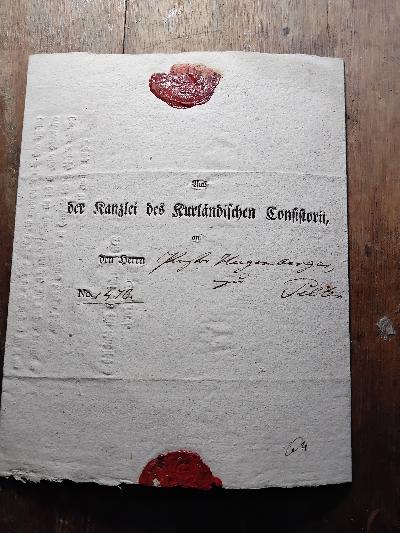 Aus
der Kanzlei des Kurländischen Consistorii,
an
den Herrn Pastor Hugenberger
zu Pilten
No. 1476.